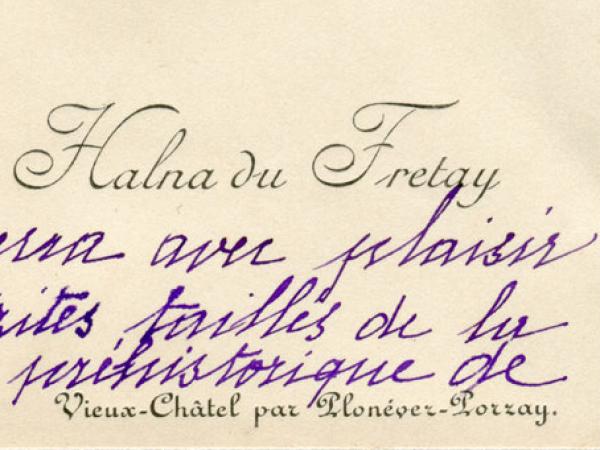 Halna du Fretay
avec plaisir
taillés de la
préhistorique de
Vieux-Châtel par Plonéver-Porzay.